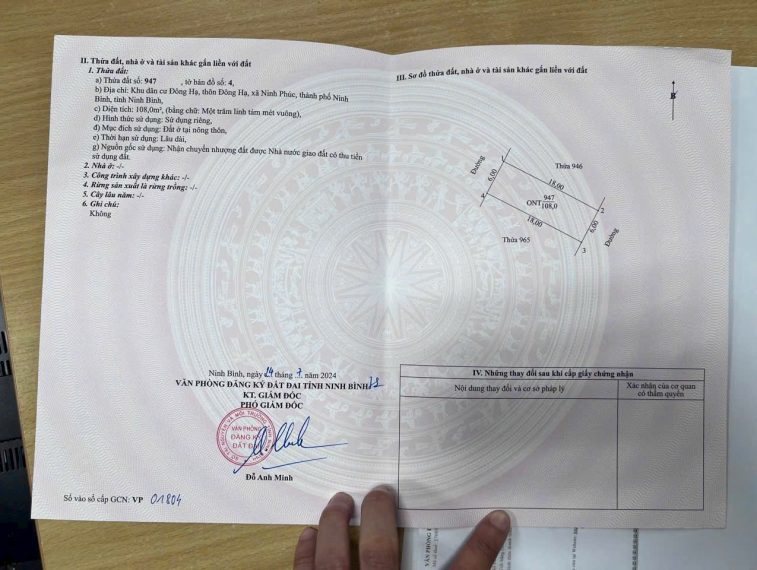 II. Thửa đất, nhà ở và tài sản khác gắn liền với đất
1. Thửa đất:
a) Thửa đất số: 947 , tờ bản đồ số: 4,
b) Địa chỉ: Khu dân cư Đông Hạ, thôn Đông Hạ, xã Ninh Phúc, thành phố Ninh
Bình, tỉnh Ninh Bình,
c) Diện tích: 108,0m², (bằng chữ: Một trăm linh tám mét vuông),
d) Hình thức sử dụng: Sử dụng riêng,
đ) Mục đích sử dụng: Đất ở tại nông thôn,
e) Thời hạn sử dụng: Lâu dài,
g) Nguồn gốc sử dụng: Nhận chuyển nhượng đất được Nhà nước giao đất có thu tiền
sử dụng đất.
2. Nhà ở: -/-
3. Công trình xây dựng khác: -/-
4. Rừng sản xuất là rừng trồng: -/-
5. Cây lâu năm: -/-
6. Ghi chú:
Không
Ninh Bình, ngày 24 tháng 7 năm 2024
VĂN PHÒNG ĐĂNG KÝ ĐẤT ĐAI TỈNH NINH BÌNH
KT. GIÁM ĐỐC
PHÓ GIÁM ĐỐC
VĂN PHÒNG
ĐĂNG KÝ
ĐẤT ĐAI
Đỗ Anh Minh
Số vào sổ cấp GCN: VP 01804
III. Sơ đồ thửa đất, nhà ở và tài sản khác gắn liền với đất
B
Đường
1
Thửa 946
6,00
18,00
947
ONT 108,0
2
4
18,00
6,00
Đường
Thửa 965
3
IV. Những thay đổi sau khi cấp giấy chứng nhận
Nội dung thay đổi và cơ sở pháp lý
Xác nhận của cơ quan
có thẩm quyền